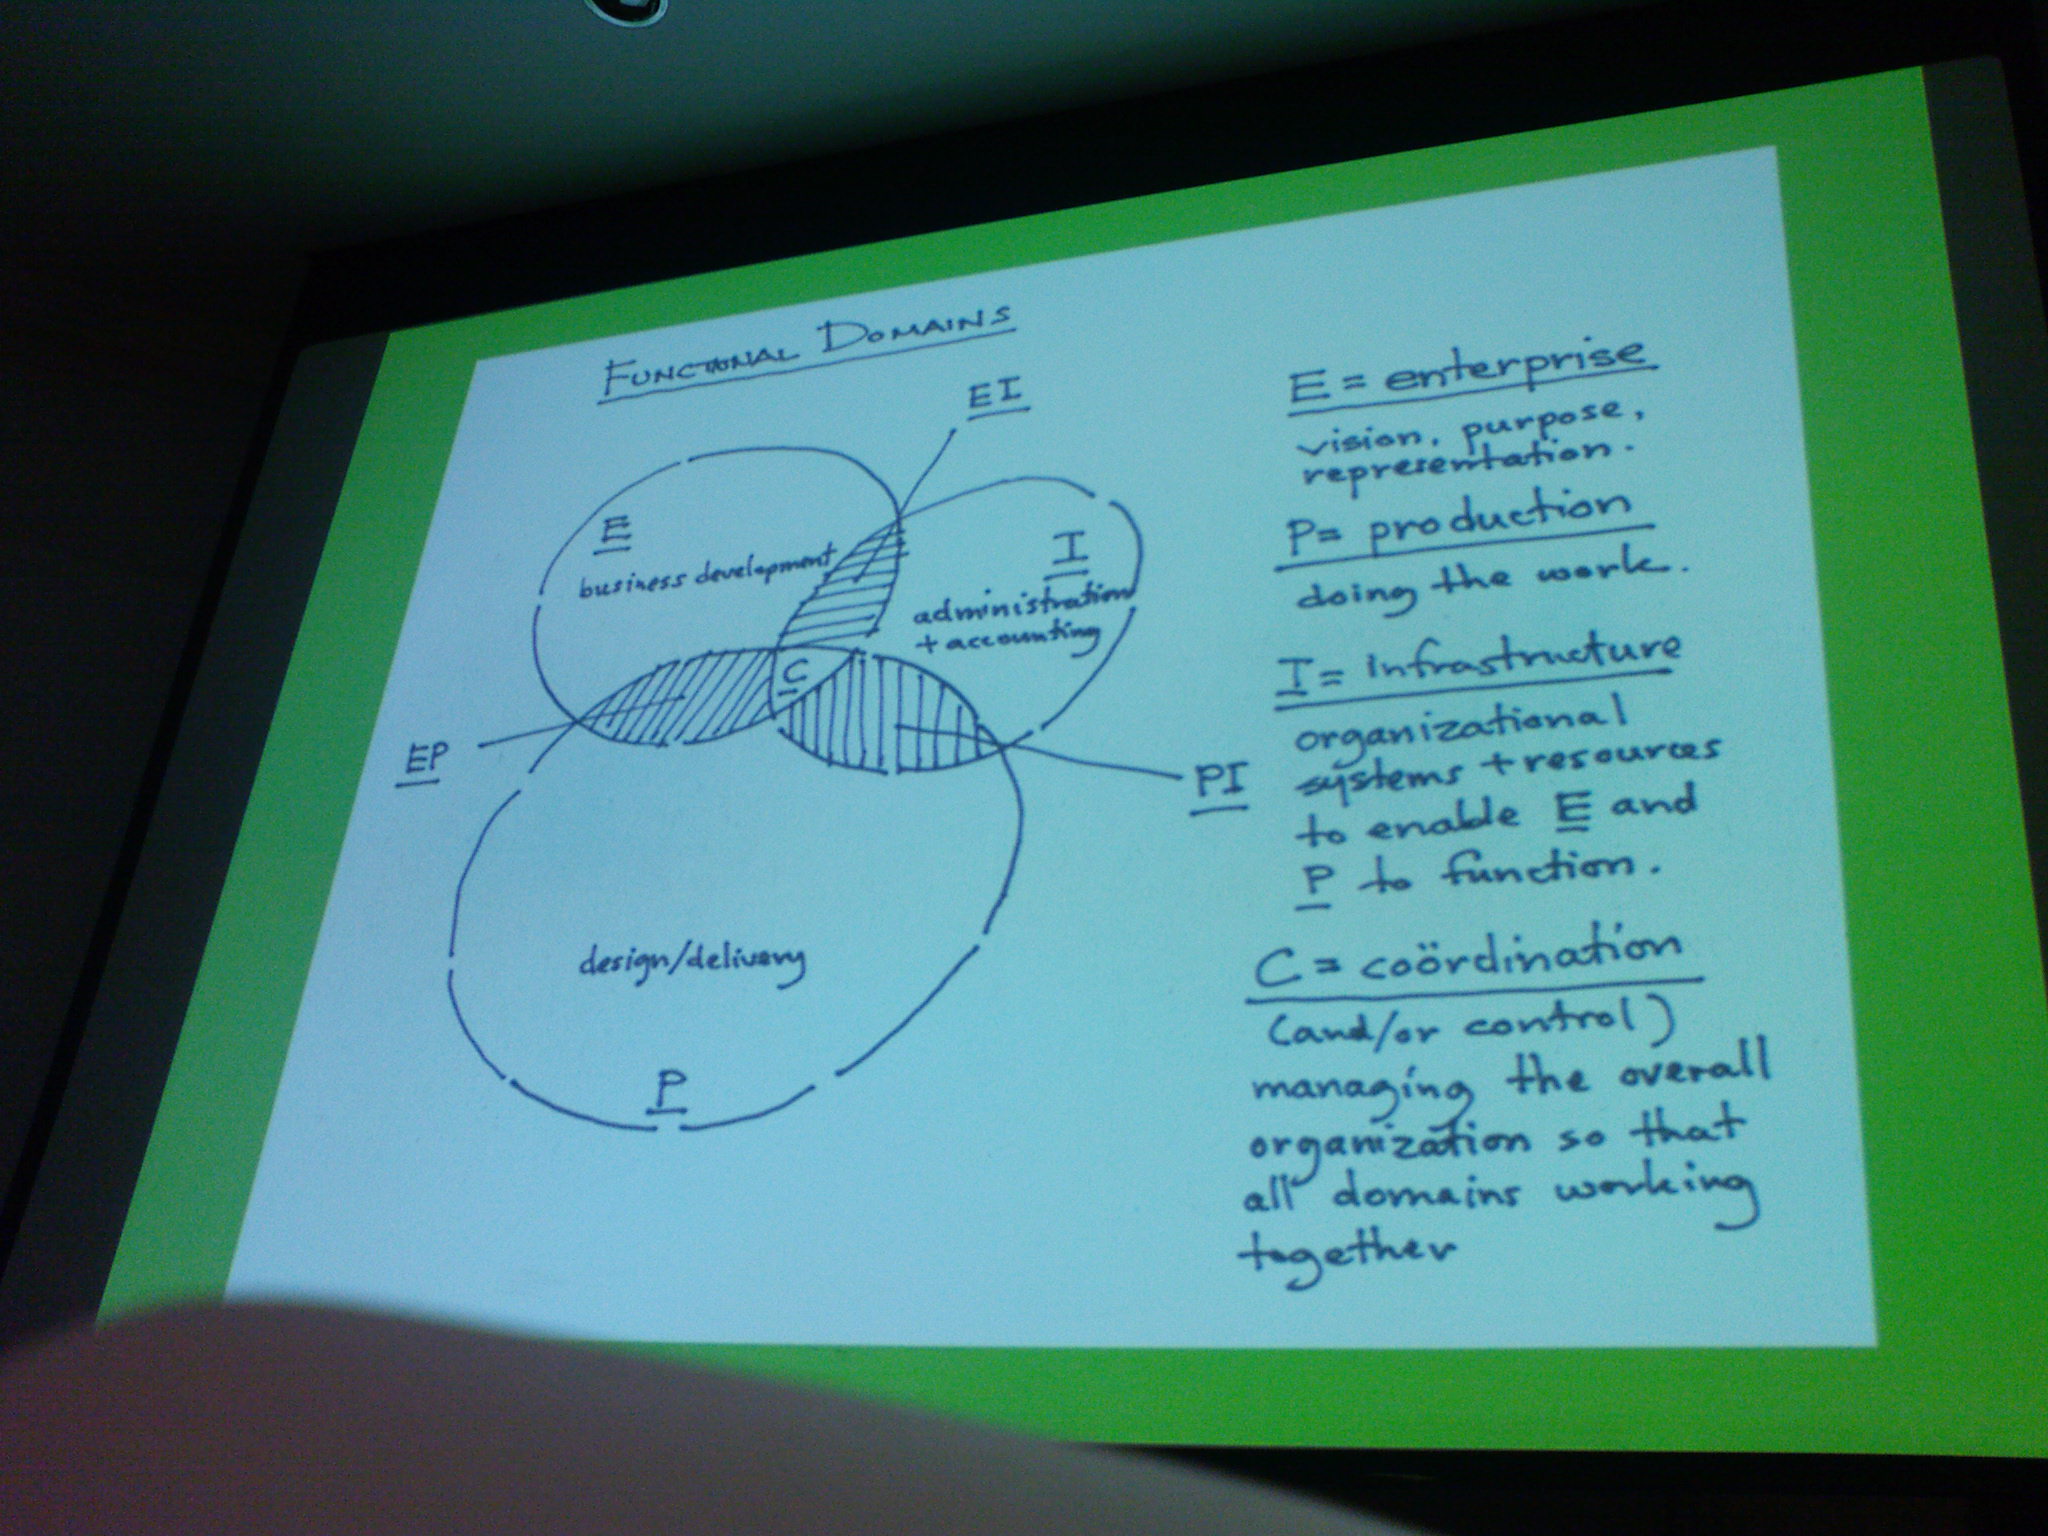 FUNCTIONAL DOMAINS
EI
E
business development
I
administration
+ accounting
C
EP
PI
design/delivery
P
E = enterprise
vision, purpose,
representation.
P = production
doing the work.
I = infrastructure
organizational
systems + resources
to enable E and
P to function.
C = coördination
(and/or control)
managing the overall
organization so that
all domains working
together